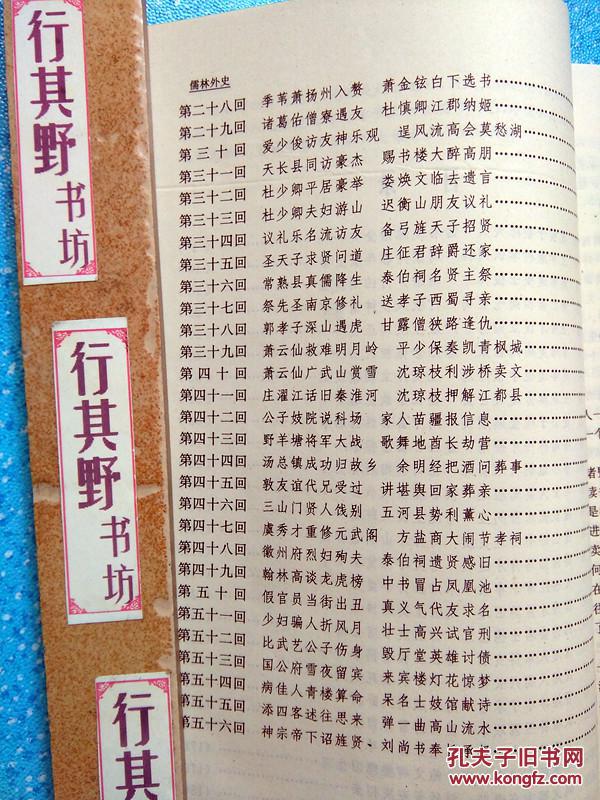 行其野书坊
行其野书坊
行其
儒林外史
第二十八回 季苇萧扬州入赘 萧金铉白下选书
第二十九回 诸葛佑僧寮遇友 杜慎卿江郡纳姬
第三十回 爱少俊访友神乐观 逞风流高会莫愁湖
第三十一回 天长县同访豪杰 赐书楼大醉高朋
第三十二回 杜少卿平居豪举 娄焕文临去遗言
第三十三回 杜少卿夫妇游山 迟衡山朋友议礼
第三十四回 议礼乐名流访友 备弓旌天子招贤
第三十五回 圣天子求贤问道 庄征君辞爵还家
第三十六回 常熟县真儒降生 泰伯祠名贤主祭
第三十七回 祭先圣南京修礼 送孝子西蜀寻亲
第三十八回 郭孝子深山遇虎 甘露僧狭路逢仇
第三十九回 萧云仙救难明月岭 平少保奏凯青枫城
第四十回 萧云仙广武山赏雪 沈琼枝利涉桥卖文
第四十一回 庄濯江话旧秦淮河 沈琼枝押解江都县
第四十二回 公子妓院说科场 家人苗疆报信息
第四十三回 野羊塘将军大战 歌舞地酋长劫营
第四十四回 汤总镇成功归故乡 余明经把酒问葬事
第四十五回 敦友谊代兄受过 讲堪舆回家葬亲
第四十六回 三山门贤人饯别 五河县势利薰心
第四十七回 虞秀才重修元武阁 方盐商大闹节孝祠
第四十八回 徽州府烈妇殉夫 泰伯祠遗贤感旧
第四十九回 翰林高谈龙虎榜 中书冒占凤凰池
第五十回 假官员当街出丑 真义气代友求名
第五十一回 少妇骗人折风月 壮士高兴试官刑
第五十二回 比武艺公子伤身 毁厅堂英雄讨债
第五十三回 国公府雪夜留宾 来宾楼灯花惊梦
第五十四回 病佳人青楼算命 呆名士妓馆献诗
第五十五回 添四客述往思来 弹一曲高山流水
第五十六回 神宗帝下诏旌贤 刘尚书奉
孔夫子旧书网
www.kongfz.com